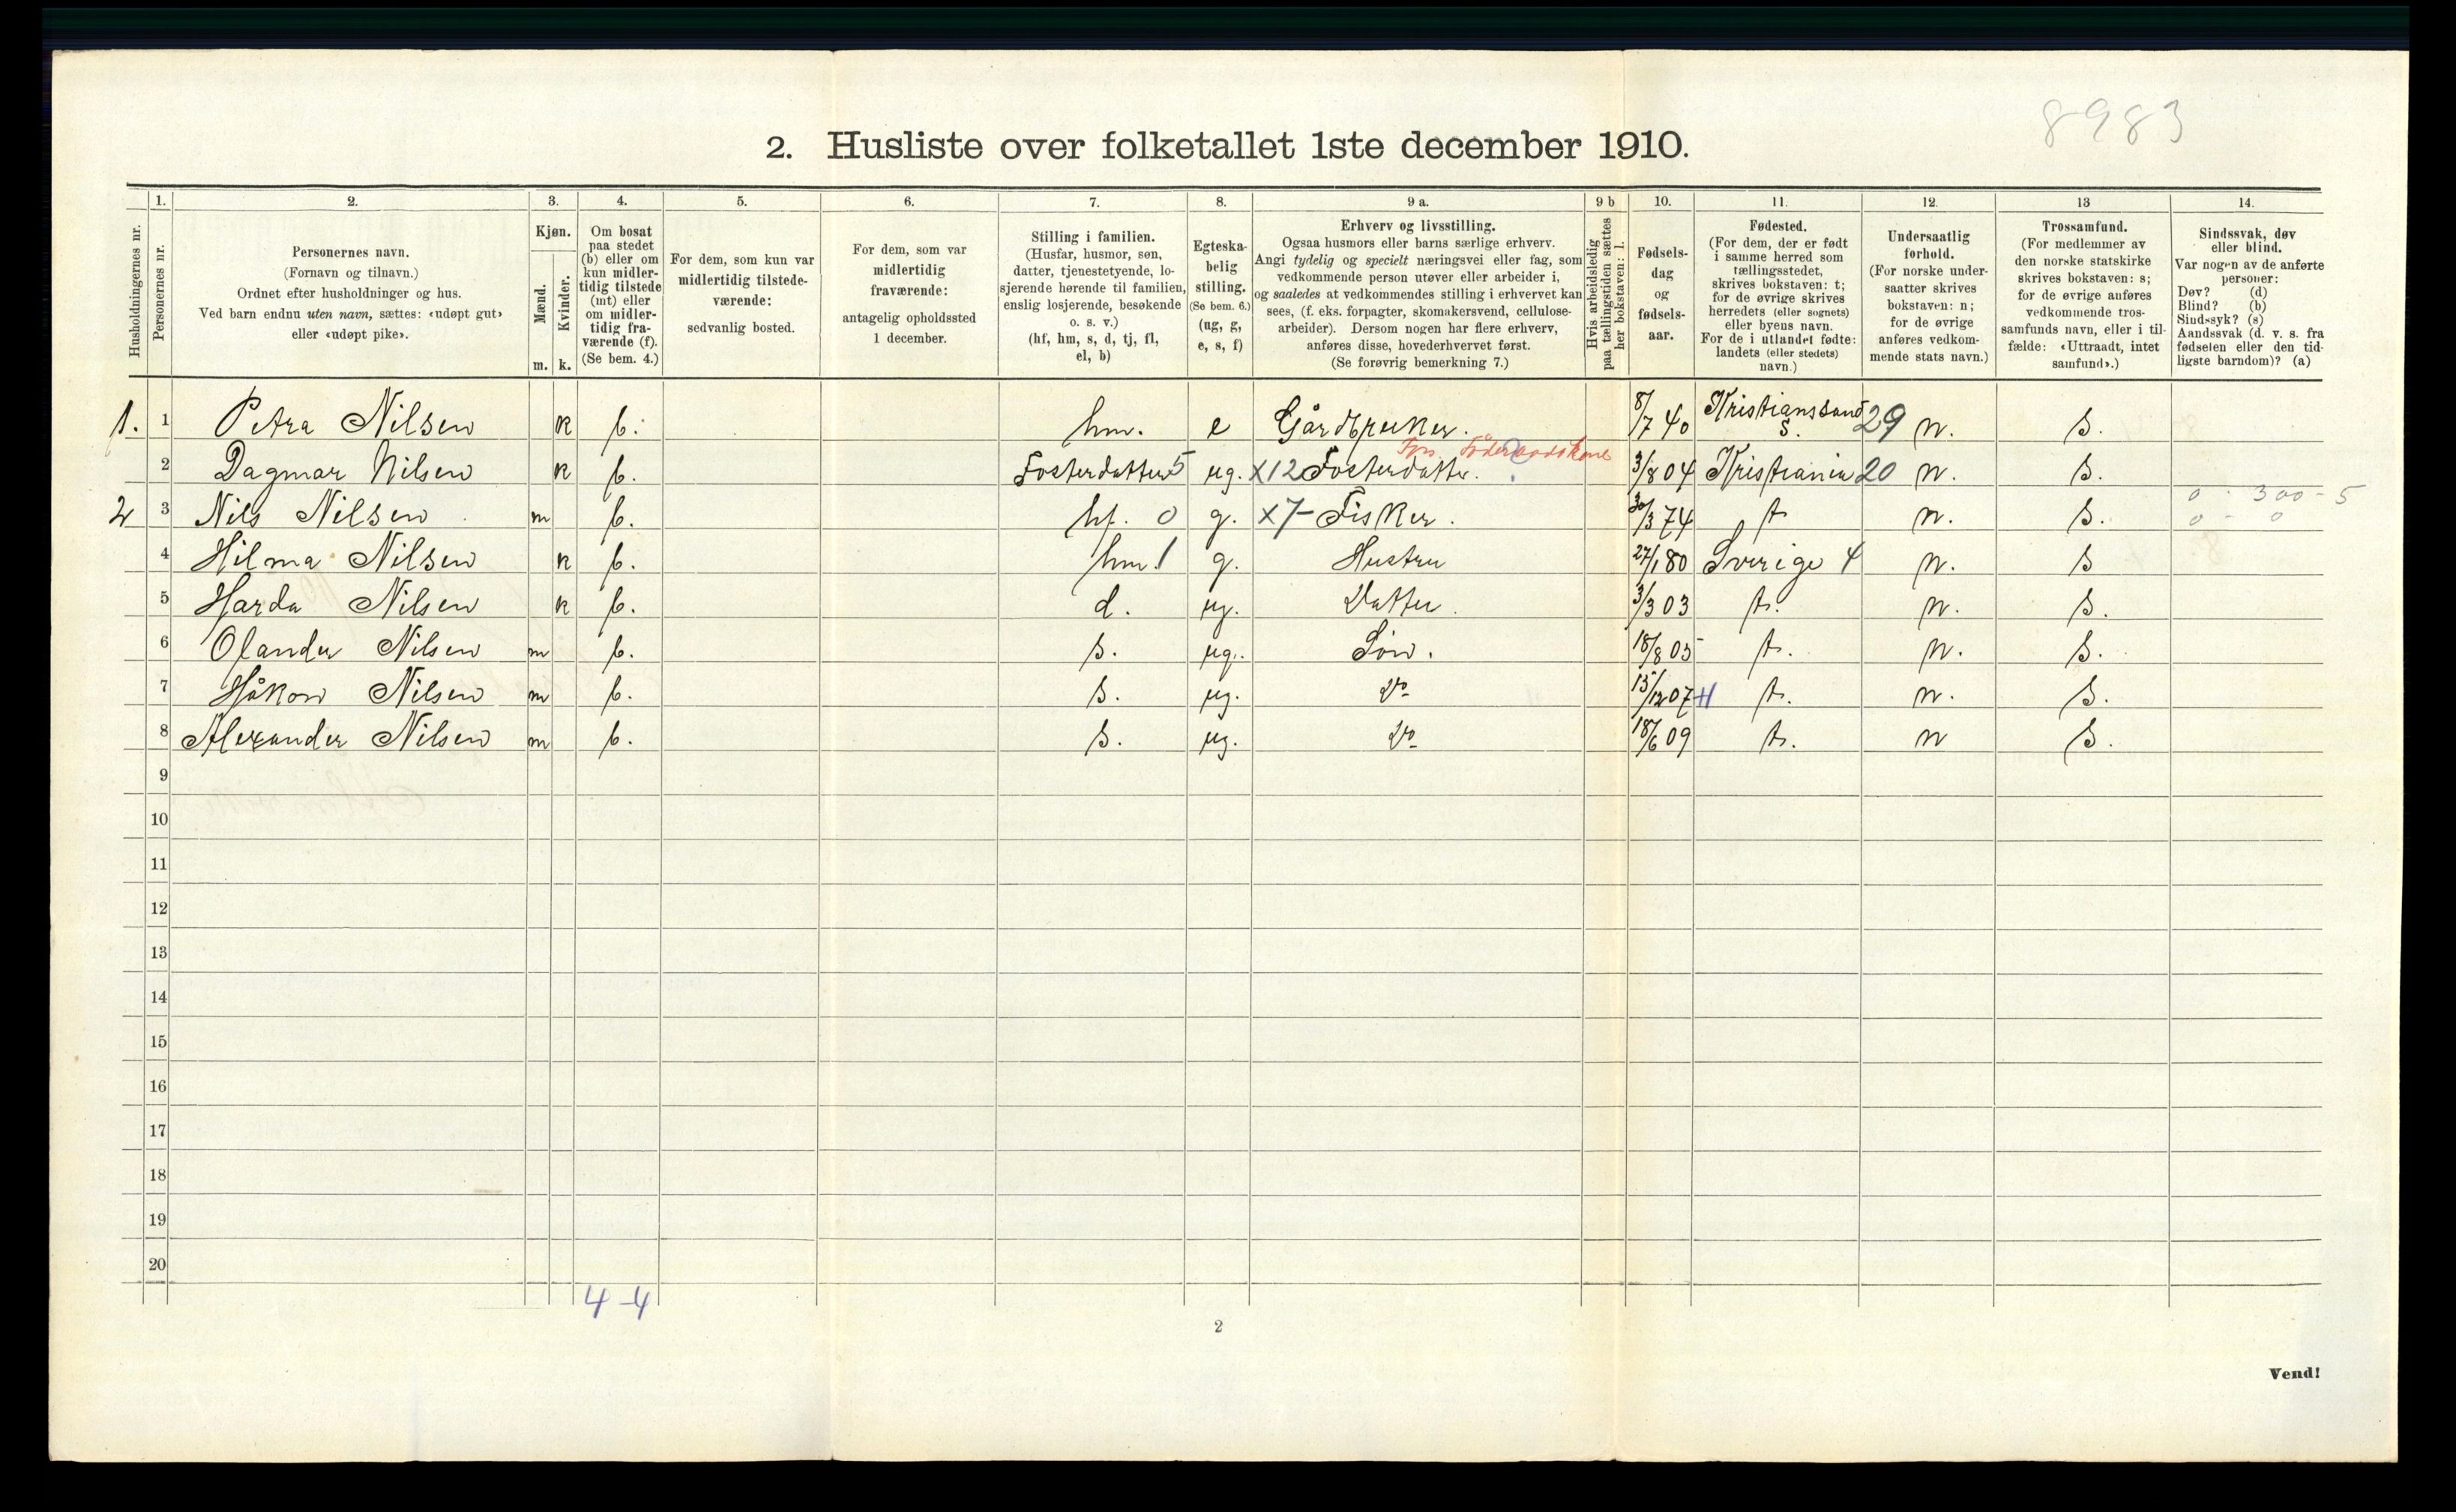 8983
2. Husliste over folketallet 1ste december 1910.
Husholdningernes nr.
1.
Personernes nr.
2.
Personernes navn.
(Fornavn og tilnavn.)
Ordnet efter husholdninger og hus.
Ved barn endnu uten navn, sættes: «udøpt gut»
eller «udøpt pike».
3.
Kjøn.
Mænd.
Kvinder.
m. k.
4.
Om bosat
paa stedet
(b) eller om
kun midler-
tidig tilstede
(mt) eller
om midler-
tidig fra-
værende (f).
(Se bem. 4.)
5.
For dem, som kun var
midlertidig tilstede-
værende:
sedvanlig bosted.
6.
For dem, som var
midlertidig
fraværende:
antagelig opholdssted
1 december.
7.
Stilling i familien.
(Husfar, husmor, søn,
datter, tjenestetyende, lo-
sjerende hørende til familien,
enslig losjerende, besøkende
o. s. v.)
(hf, hm, s, d, tj, fl,
el, b)
8.
Egteska-
belig
stilling.
(Se bem. 6.)
(ug, g,
e, s, f)
9 a.
Erhverv og livsstilling.
Ogsaa husmors eller barns særlige erhverv.
Angi tydelig og specielt næringsvei eller fag, som
vedkommende person utøver eller arbeider i,
og saaledes at vedkommendes stilling i erhvervet kan
sees, (f. eks. forpagter, skomakersvend, cellulose-
arbeider). Dersom nogen har flere erhverv,
anføres disse, hovederhvervet først.
(Se forøvrig bemerkning 7.)
9 b
Hvis arbeidsledig
paa tællingstiden sættes
her bokstaven: l.
10.
Fødsels-
dag
og
fødsels-
aar.
11.
Fødested.
(For dem, der er født
i samme herred som
tællingsstedet,
skrives bokstaven: t;
for de øvrige skrives
herredets (eller sognets)
eller byens navn.
For de i utlandet fødte:
landets (eller stedets)
navn.)
12.
Undersaatlig
forhold.
(For norske under-
saatter skrives
bokstaven: n;
for de øvrige
anføres vedkom-
mende stats navn.)
13
Trossamfund.
(For medlemmer av
den norske statskirke
skrives bokstaven: s;
for de øvrige anføres
vedkommende tros-
samfunds navn, eller i til-
fælde: «Uttraadt, intet
samfund».)
14.
Sindssvak, døv
eller blind.
Var nogen av de anførte
personer:
Døv? (d)
Blind? (b)
Sindssyk? (s)
Aandssvak (d. v. s. fra
fødselen eller den tid-
ligste barndom)? (a)
1. 1 Petra Nilsen k b. hm. e Gårdbruker. 8/7 40 Kristianssand S. 29 n. s.
Føderaadskone
2 Dagmar Nilsen k b. Fosterdatter 5 ug. x12 Fosterdatter. 3/8 04 Kristiania 20 n. s.
2 3 Nils Nilsen m b. hf. 0 g. x7- Fisker. 30/3 74 t n. s. 0 - 300 - 5
0 - 0
4 Hilma Nilsen k b. hm. 1 g. Hustru 27/1 80 Sverige 4 n. s
5 Harda Nilsen k b. d. ug. Datter. 3/3 03 t. n. s.
6 Olander Nilsen m b. s. ug. Søn. 18/8 05 t. n. s.
7 Håkon Nilsen m b. s. ug. Do 15/12 07 H t. n. s.
8 Alexander Nilsen m b. s. ug. Do 18/6 09 t. n s.
9
10
11
12
13
14
15
16
17
18
19
20
4-4
2
Vend!